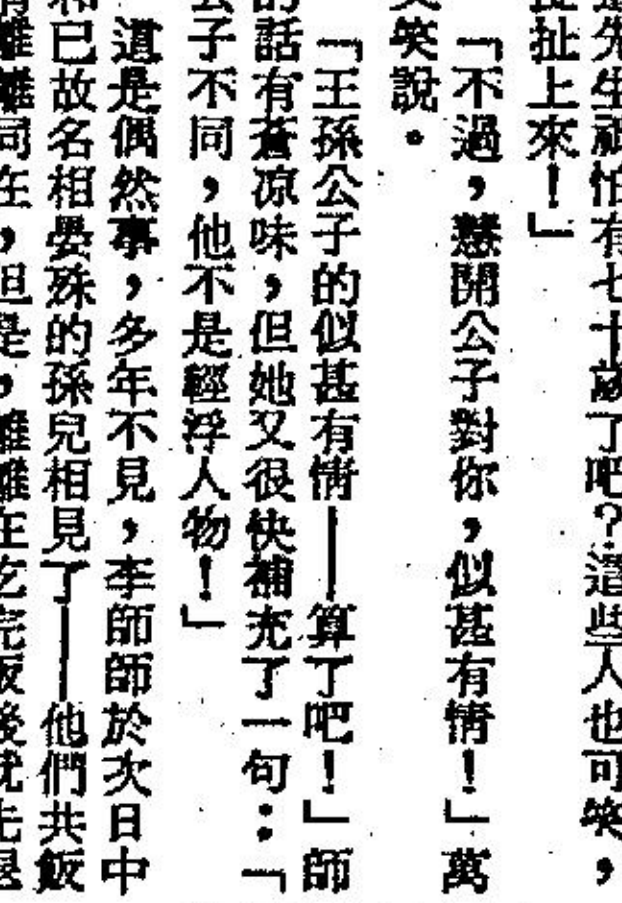 先生祇怕有七十歲了吧？這些人也可笑，
扯上來！」
「不過，慧開公子對你，似甚有情！」萬
笑說。
「王孫公子的似甚有情——算了吧！」師
的話有蒼凉味，但她又很快補充了一句：「
公子不同，他不是輕浮人物！」
道是偶然事，多年不見，李師師於次日中
和已故名相晏殊的孫兒相見了——他們共飯
離離同在，但是，離離在吃完飯後就先退